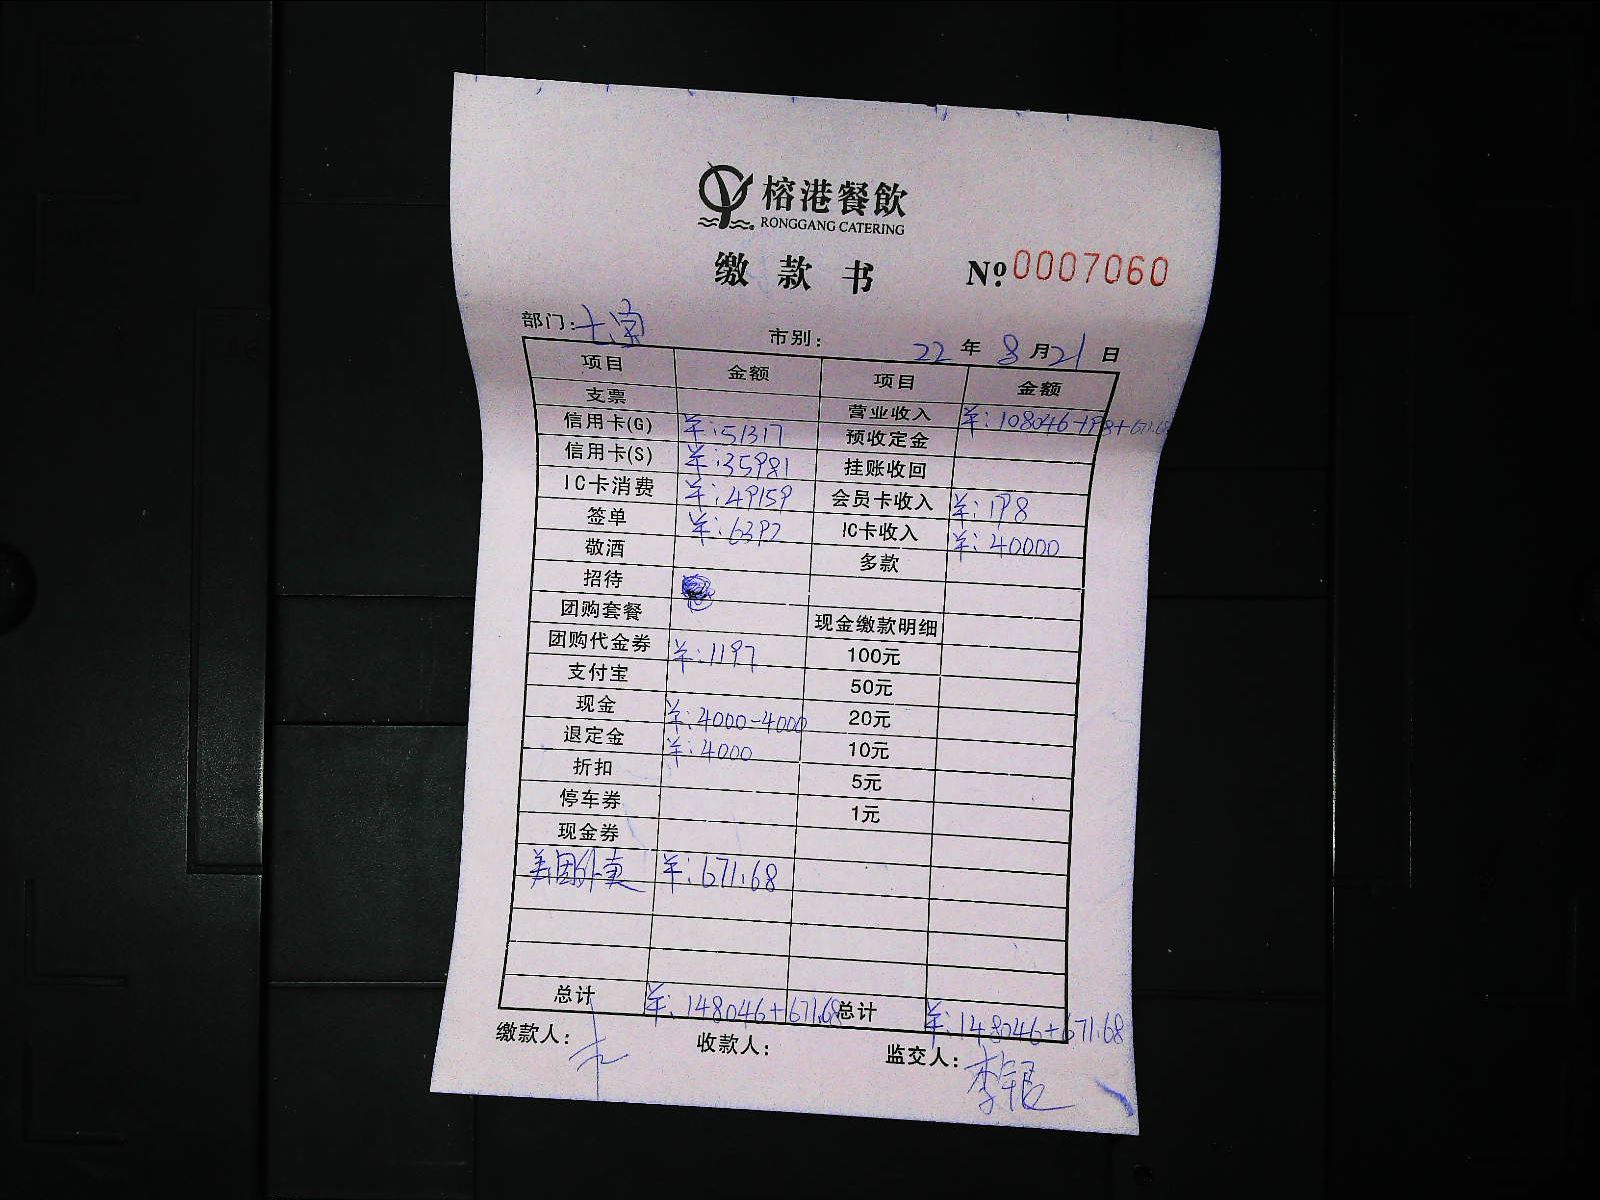 榕港餐飲
RONGGANG CATERING
缴款书 Nº.0007060
部门: 市别: 22年8月21日
项目 金额 项目 金额
支票 营业收入 羊:108046+198+671.68
信用卡(G) 羊:51317 预收定金
信用卡(S) 羊:35981 挂账收回
IC卡消费 羊:49159 会员卡收入 羊:198
签单 羊:6392 IC卡收入 羊:40000
敬酒 多款
招待
团购套餐 现金缴款明细
团购代金券 羊:1197 100元
支付宝 50元
现金 羊:4000-4000 20元
退定金 羊:4000 10元
折扣 5元
停车券 1元
现金券
美团外卖 羊:671.68
总计 羊:148046+671.68 总计 羊:148046+671.68
缴款人: 收款人: 监交人:李银